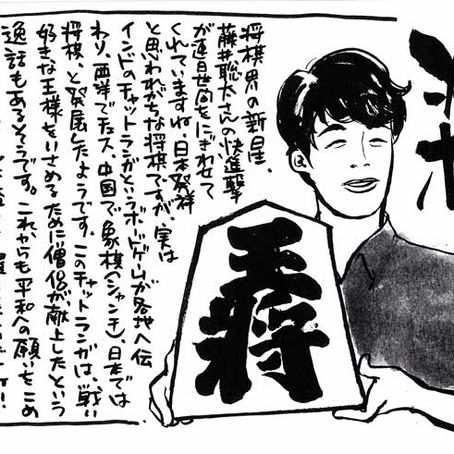 将棋界の新星、
藤井聡太さんの快進撃
が連日世間をにぎわせて
くれていますね。日本発祥
と思われがちな将棋ですが、実は
インドのチャットランガというボードゲームが各地へ伝
わり、西洋でチェス、中国で象棋(シャンチー)、日本では
将棋、と発展したようです。このチャットランガは、戦い
好きな王様をいさめるために僧侶が献上したという
逸話もあるそうです。これからも平和への願いをこめ
王将